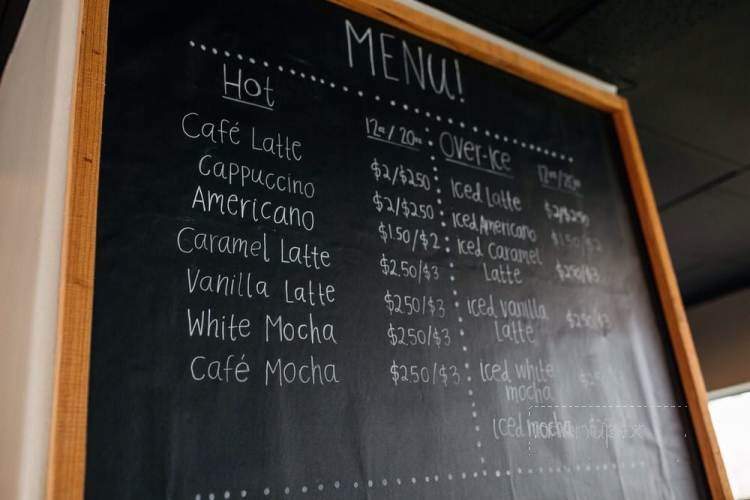 MENU!
Hot
12oz/20oz
Café Latte $2/$250
Cappuccino $2/$250
Americano $1.50/$2
Caramel Latte $2.50/$3
Vanilla Latte $250/$3
White Mocha $250/$3
Café Mocha $250/$3
Over-Ice
12oz/20oz
Iced Latte $2/$250
iced Americano $1.50/$2
iced Caramel
Latte $250/$3
iced vanilla
Latte $250/$3
iced white
mocha
Iced mocha